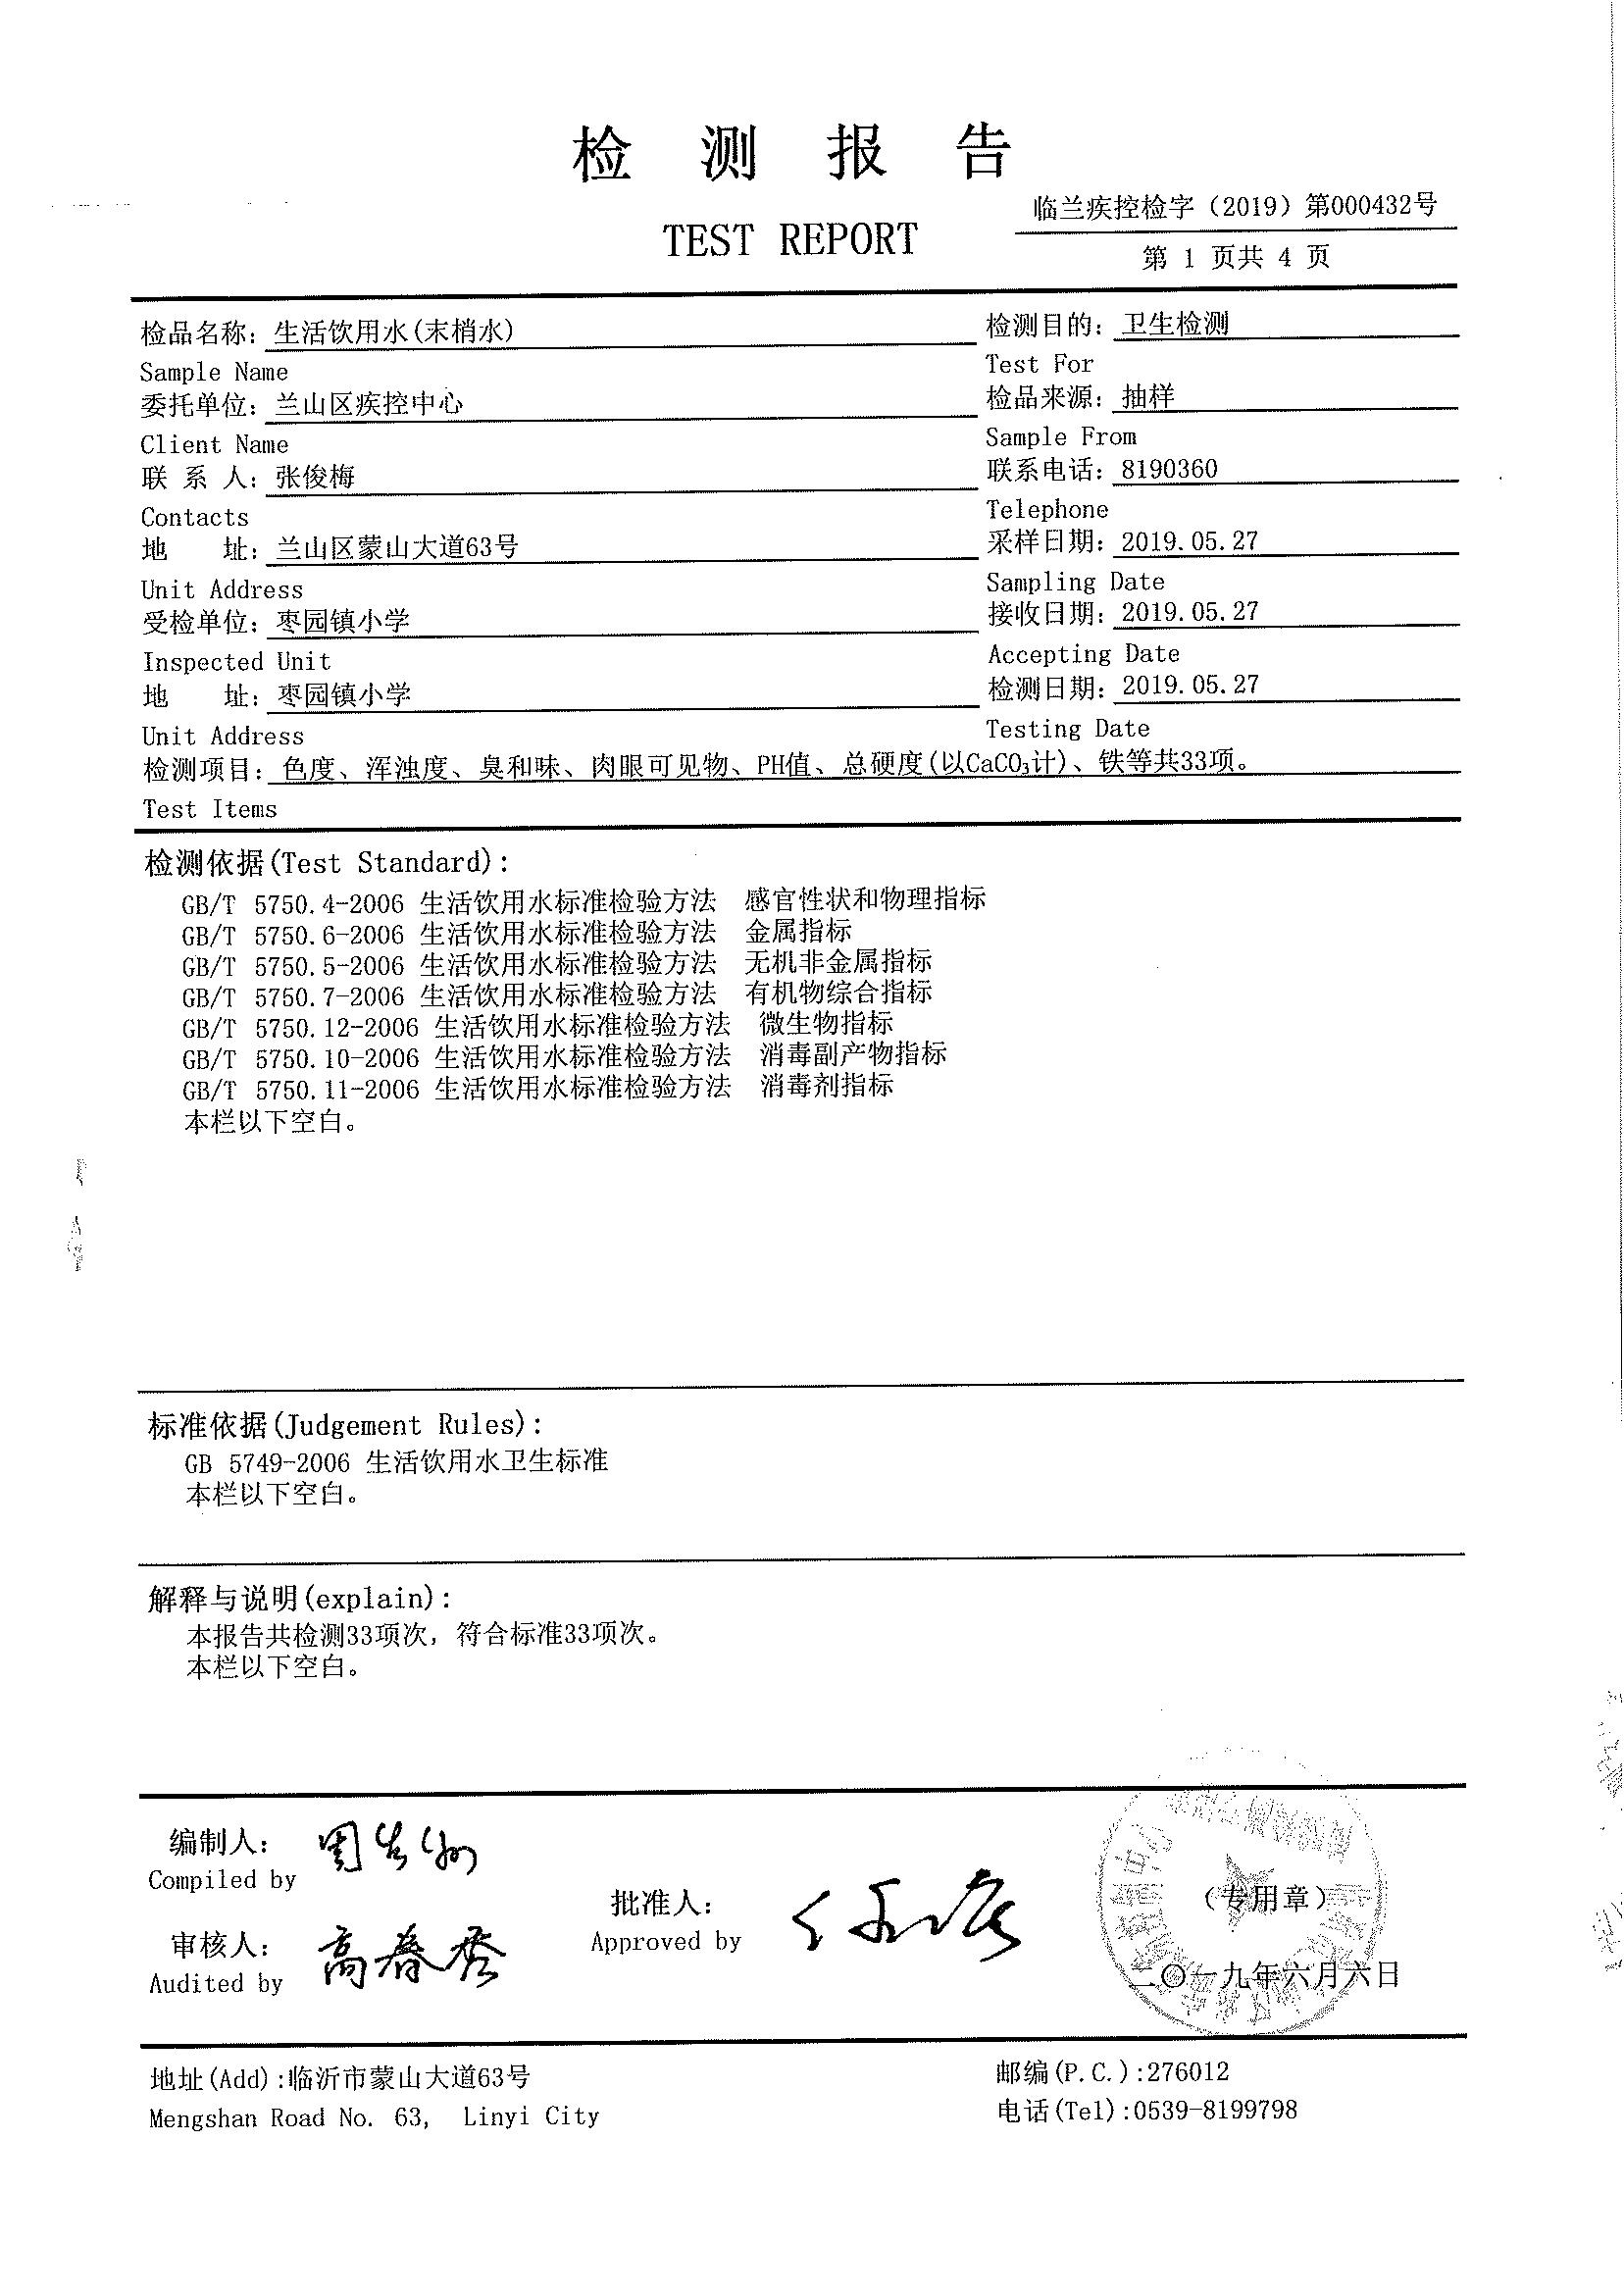 检 测 报 告
临兰疾控检字（2019）第000432号
TEST REPORT
第 1 页共 4 页
检品名称：生活饮用水(末梢水) 检测目的：卫生检测
Sample Name Test For
委托单位：兰山区疾控中心 检品来源：抽样
Client Name Sample From
联 系 人：张俊梅 联系电话：8190360
Contacts Telephone
地 址：兰山区蒙山大道63号 采样日期：2019.05.27
Unit Address Sampling Date
受检单位：枣园镇小学 接收日期：2019.05.27
Inspected Unit Accepting Date
地 址：枣园镇小学 检测日期：2019.05.27
Unit Address Testing Date
检测项目：色度、浑浊度、臭和味、肉眼可见物、PH值、总硬度(以CaCO₃计)、铁等共33项。
Test Items
检测依据(Test Standard):
GB/T 5750.4-2006 生活饮用水标准检验方法 感官性状和物理指标
GB/T 5750.6-2006 生活饮用水标准检验方法 金属指标
GB/T 5750.5-2006 生活饮用水标准检验方法 无机非金属指标
GB/T 5750.7-2006 生活饮用水标准检验方法 有机物综合指标
GB/T 5750.12-2006 生活饮用水标准检验方法 微生物指标
GB/T 5750.10-2006 生活饮用水标准检验方法 消毒副产物指标
GB/T 5750.11-2006 生活饮用水标准检验方法 消毒剂指标
本栏以下空白。
标准依据(Judgement Rules):
GB 5749-2006 生活饮用水卫生标准
本栏以下空白。
解释与说明(explain):
本报告共检测33项次，符合标准33项次。
本栏以下空白。
编制人：
Compiled by
批准人：
Approved by
（专用章）
审核人：高春秀
Audited by
二〇一九年六月六日
地址(Add):临沂市蒙山大道63号 邮编(P.C.):276012
Mengshan Road No. 63, Linyi City 电话(Tel):0539-8199798